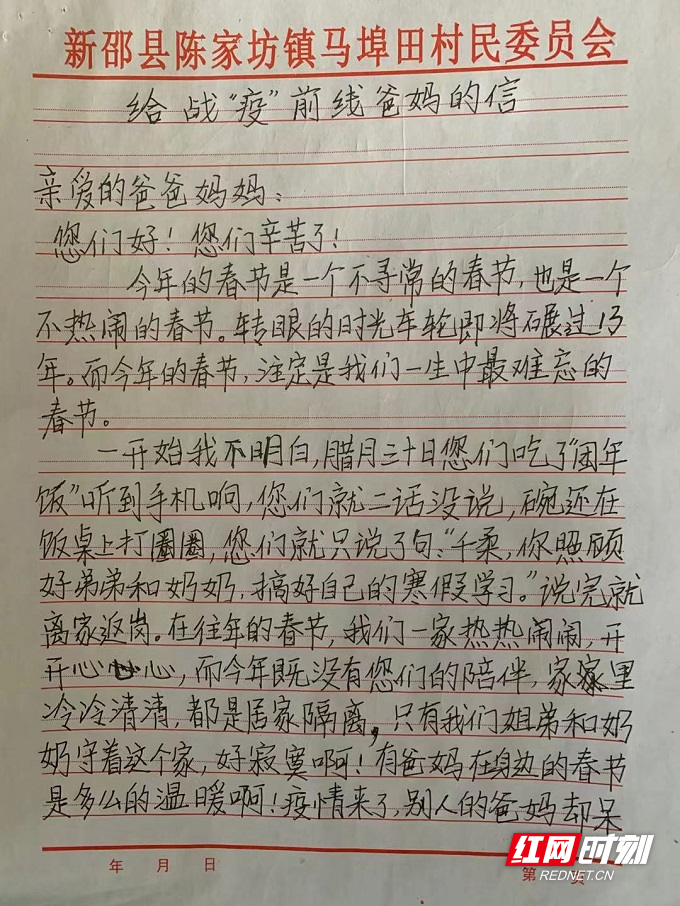 新邵县陈家坊镇马埠田村民委员会
给战“疫”前线爸妈的信
亲爱的爸爸妈妈：
您们好！您们辛苦了！
今年的春节是一个不寻常的春节，也是一个
不热闹的春节。转眼的时光车轮即将碾过13
年。而今年的春节，注定是我们一生中最难忘的
春节。
一开始我不明白，腊月三十日您们吃了“团年
饭”听到手机响，您们就二话没说，碗还在
饭桌上打圈圈，您们就只说了句：“千柔，你照顾
好弟弟和奶奶，搞好自己的寒假学习。”说完就
离家返岗。在往年的春节，我们一家热热闹闹，开
开心心，而今年既没有您们的陪伴，家里
冷冷清清，都是居家隔离，只有我们姐弟和奶
奶守着这个家，好寂寞啊！有爸妈在身边的春节
是多么的温暖啊！疫情来了，别人的爸妈却呆
年 月 日
第 页
红网时刻
REDNET.CN